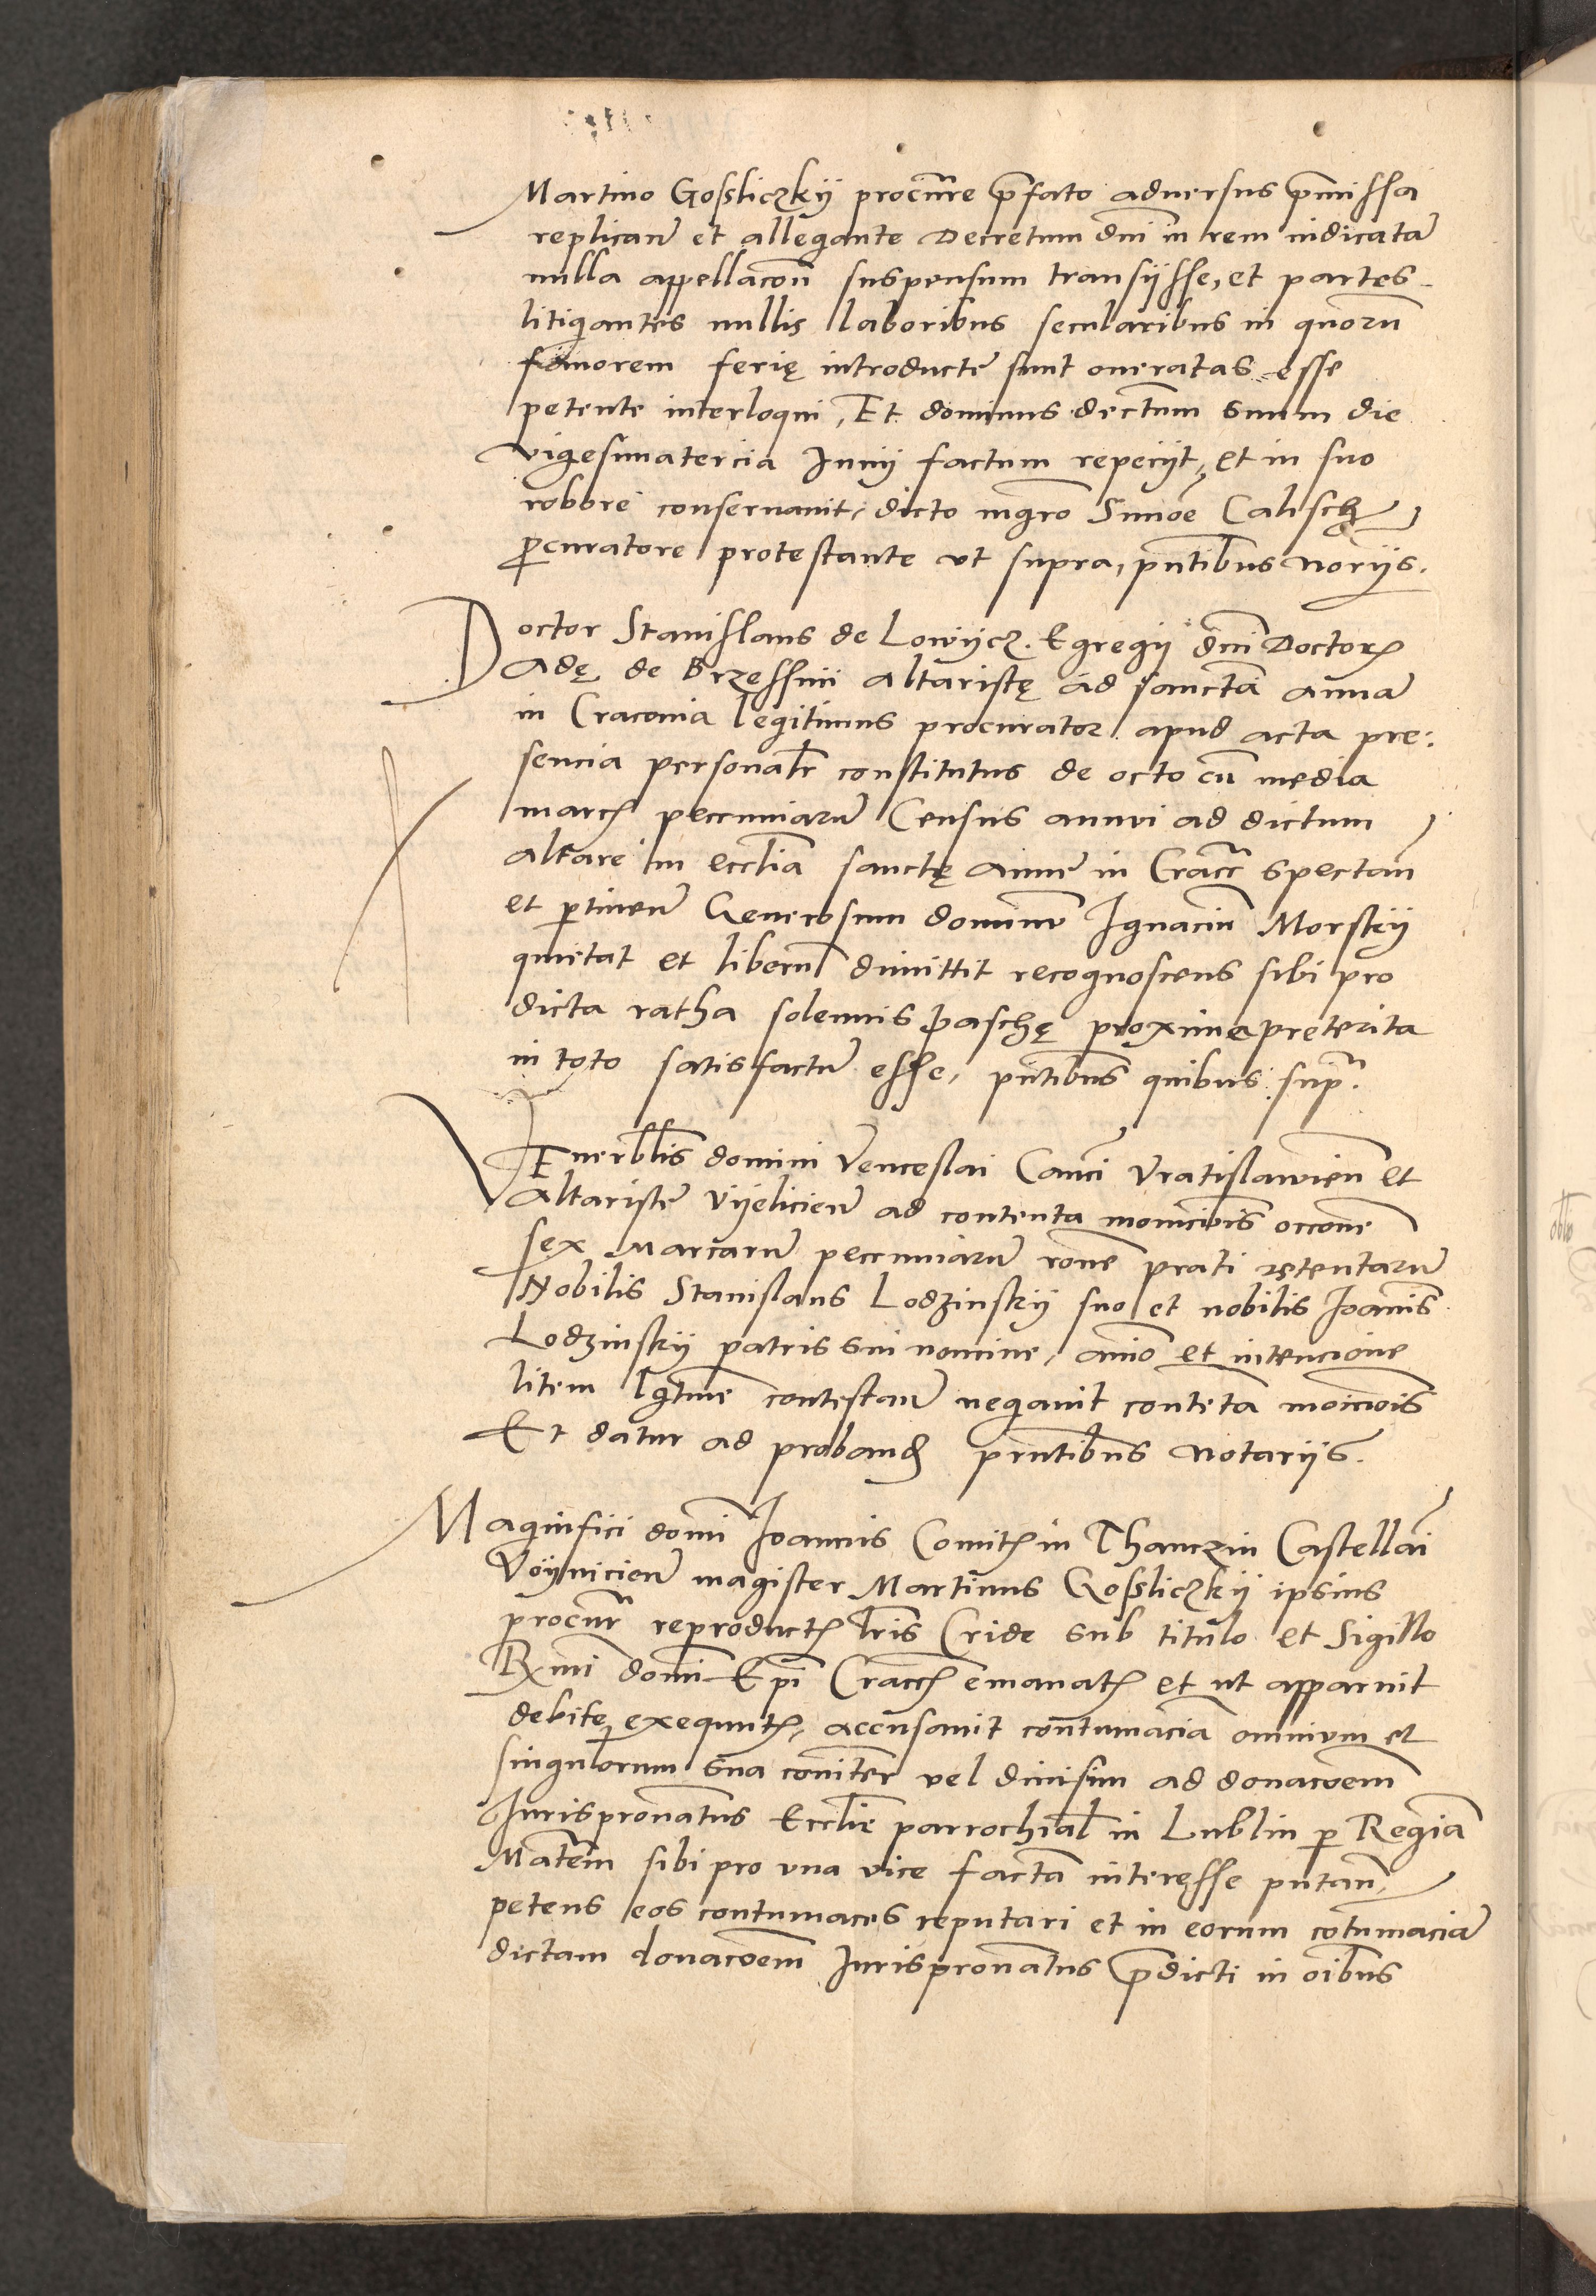 Martino Gosliczkij procure pfato aduersus pmissa
replican et allegante Decretum dni in rem iudicata
nulla appellacon suspensum transijsse, et partes
litigantes nullis laboribus secularibus in quoru
fauorem ferię introducte sunt oneratas esse
petente interloqui, Et dominus dectum suum die
vigesimatercia Junij factum repecijt, et in suo
robore conseruauit, dicto mgro Simoe Calisch
pcuratore protestante vt supra, pntibus norijs.
Doctor Stanislaus de Lowijcz. Egregij dni Doctor
Adę de Brzessinij altaristę ad sanctam anna
in Cracouia legitimus procurator apud acta pre:
sencia personalr constitutus de octo cu media
marc pecuniaru Census annui ad dictum
altare in ecclia sanctę Anne in Cracc spectan
et ptinen Generosum dominu Ignaciu Morskij
quitat et liberu dimittit recognoscens sibi pro
dicta ratha solennis paschę proxime preterita
in toto satisfactu esse, pntibus quibus supr.
Venerblis domini Venceslai Canci Vratislawien et
Altariste Vijelicien ad contenta monicionis occone
sex Marcaru pecuniaru rone prati retentaru
Nobilis Stanislaus Lodzinskij suo et nobilis Joannis
Lodzinskij patris sui nomine, amio et intencione
litem lgtime contestan negauit conteta moicois
Et datur ad proband pntibus Notarijs.
Magnifici domi Joannis Comit in Thanczin Castellai
Voijnicien magister Martinus Gosliczkij ipsius
procur reproduct lris Cride sub titulo et Sigillo
Rmi domi Epi Cracc emanat et ut apparuit
debite exequut, accusauit contumacia omnium et
singulorum sua coniter vel diuisim ad donacoem
Jurispronatus Ecclie parrochial in Lublin p Regia
Matem sibi pro vna vice facta interesse putan,
petens eos contumaces reputari et in eorum cotumacia
dictam donacoem Jurispronatus pdicti in oibus